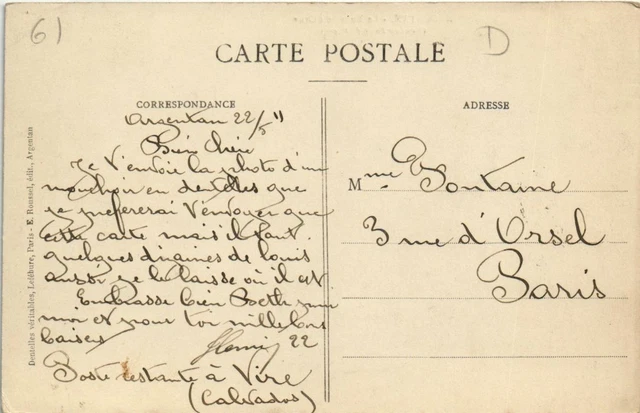 61
D
CARTE POSTALE
CORRESPONDANCE
ADRESSE
Argentan 22/5 11
Bien chère
Je t'envoie la photo d'un
mouchoir en dentelles que
je prefererai t'envoyer que
cette carte mais il faut
quelques dizaines de louis
aussi je le laisse où il est
Embrasse bien Berthe pour
moi et pour toi mille bons
baisers
Henri 22
Poste restante à Vire
(Calvados)
Mme Fontaine
3 rue d'Orsel
Paris
Dentelles véritables, Lefébure, Paris - E. Roussel, édit., Argentan